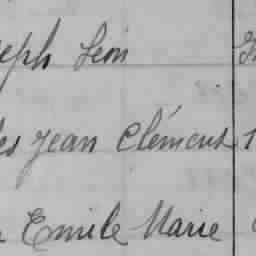 eph Léon
es Jean Clément
Emile Marie